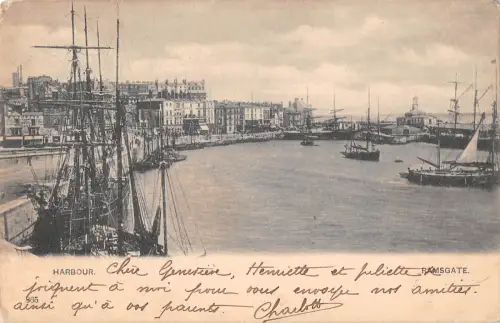 HARBOUR. Chère Geneviève, Henriette et Juliette se RAMSGATE.
joignent à moi pour vous envoyer nos amitiés.
865 ainsi qu'à vos parents. Charlotte